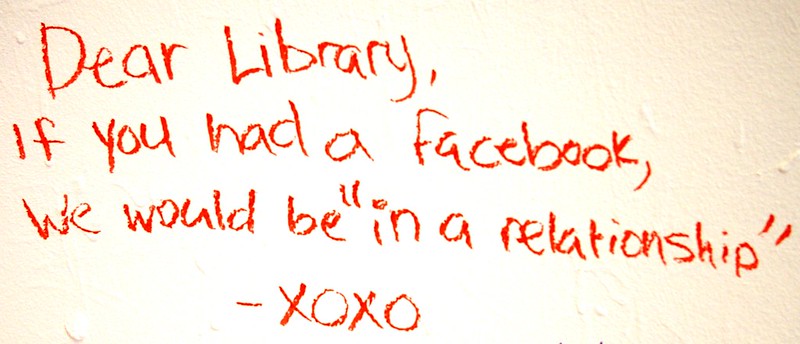 Dear Library,
If you had a facebook,
We would be "in a relationship"
- XOXO